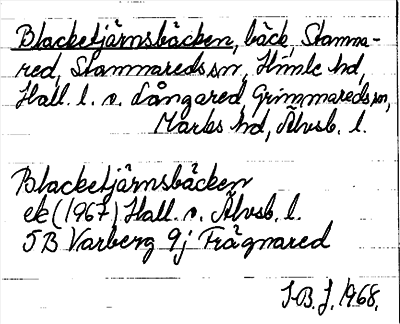 Blacketjärnsbäcken, bäck, Stamma-
red, Stammareds sn, Himle hd,
Hall. l. o. Långared, Grimmareds sn,
Marks hd, Älvsb. l.
Blacketjärnsbäcken
ek (1967) Hall. o. Älvsb. l.
5B Varberg 9j Frägnared
I.B.J. 1968.